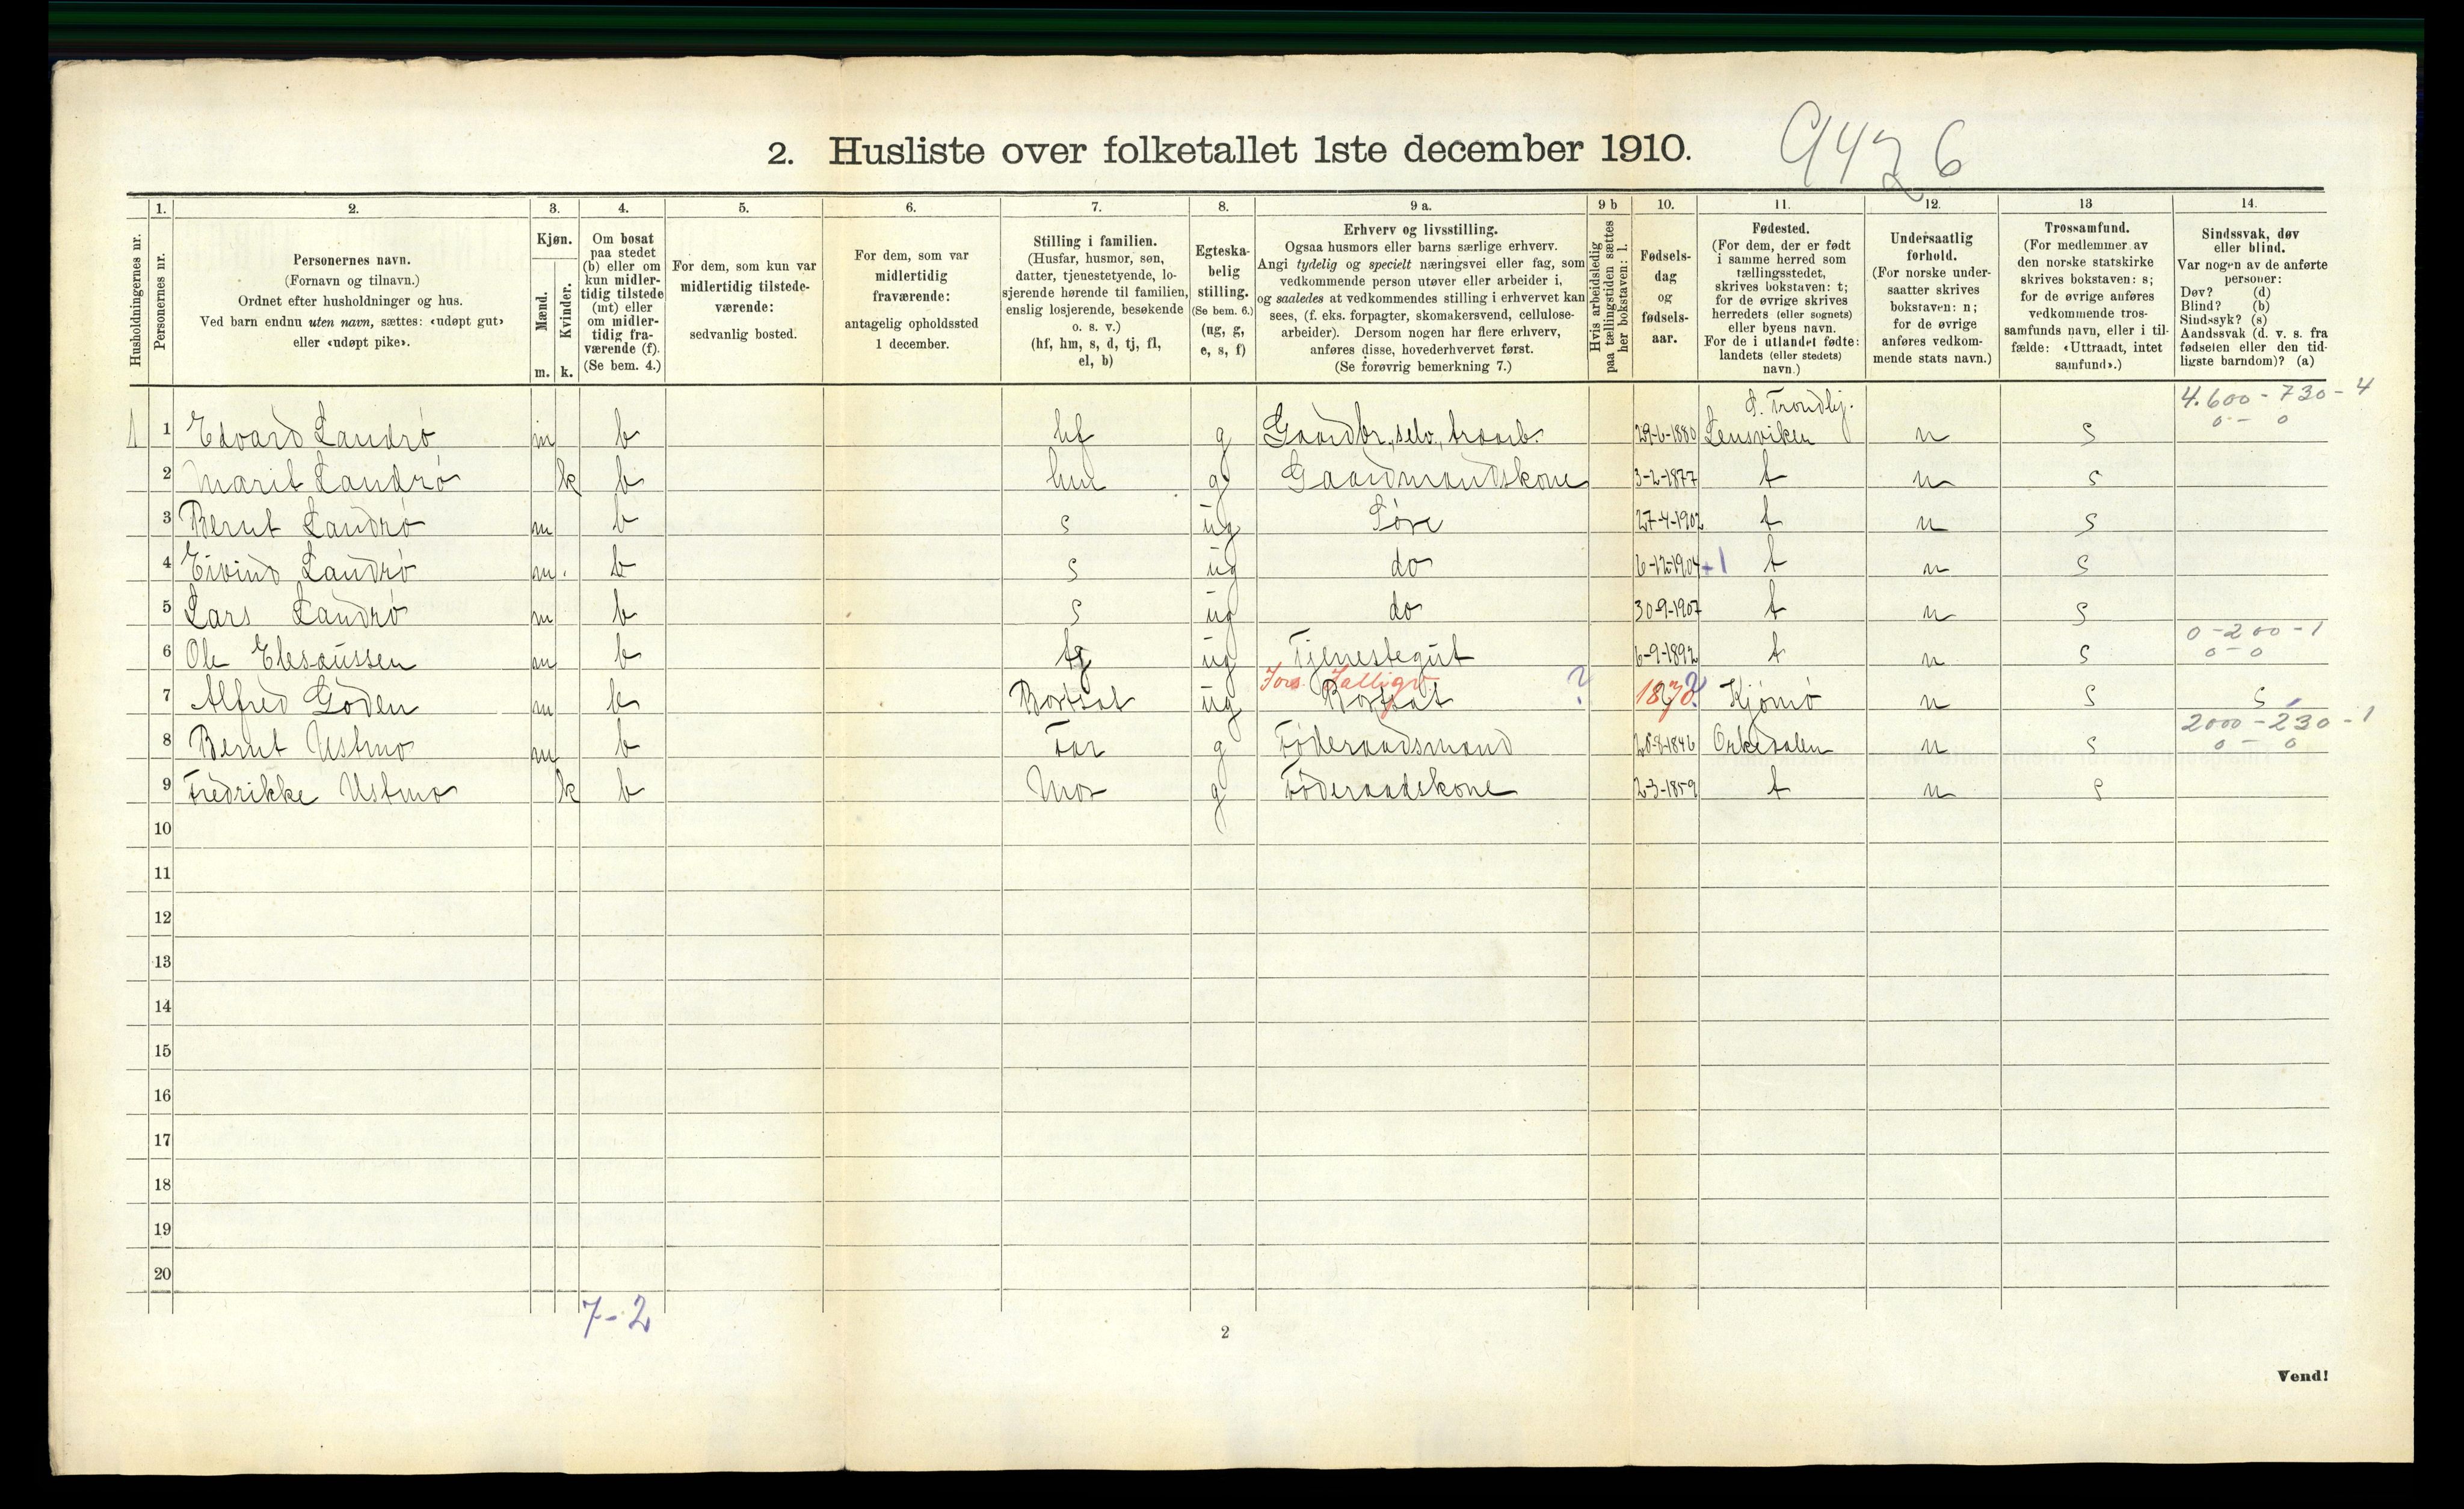 2. Husliste over folketallet 1ste december 1910.
9426
Husholdningernes nr.
1.
Personernes nr.
2.
Personernes navn.
(Fornavn og tilnavn.)
Ordnet efter husholdninger og hus.
Ved barn endnu uten navn, sættes: «udøpt gut»
eller «udøpt pike».
3.
Kjøn.
Mænd.
Kvinder.
m. k.
4.
Om bosat
paa stedet
(b) eller om
kun midler-
tidig tilstede
(mt) eller
om midler-
tidig fra-
værende (f).
(Se bem. 4.)
5.
For dem, som kun var
midlertidig tilstede-
værende:
sedvanlig bosted.
6.
For dem, som var
midlertidig
fraværende:
antagelig opholdssted
1 december.
7.
Stilling i familien.
(Husfar, husmor, søn,
datter, tjenestetyende, lo-
sjerende hørende til familien,
enslig losjerende, besøkende
o. s. v.)
(hf, hm, s, d, tj, fl,
el, b)
8.
Egteska-
belig
stilling.
(Se bem. 6.)
(ug, g,
e, s, f)
9 a.
Erhverv og livsstilling.
Ogsaa husmors eller barns særlige erhverv.
Angi tydelig og specielt næringsvei eller fag, som
vedkommende person utøver eller arbeider i,
og saaledes at vedkommendes stilling i erhvervet kan
sees, (f. eks. forpagter, skomakersvend, cellulose-
arbeider). Dersom nogen har flere erhverv,
anføres disse, hovederhvervet først.
(Se forøvrig bemerkning 7.)
9 b
Hvis arbeidsledig
paa tællingstiden sættes
her bokstaven: l.
10.
Fødsels-
dag
og
fødsels-
aar.
11.
Fødested.
(For dem, der er født
i samme herred som
tællingsstedet,
skrives bokstaven: t;
for de øvrige skrives
herredets (eller sognets)
eller byens navn.
For de i utlandet fødte:
landets (eller stedets)
navn.)
12.
Undersaatlig
forhold.
(For norske under-
saatter skrives
bokstaven: n;
for de øvrige
anføres vedkom-
mende stats navn.)
13
Trossamfund.
(For medlemmer av
den norske statskirke
skrives bokstaven: s;
for de øvrige anføres
vedkommende tros-
samfunds navn, eller i til-
fælde: «Uttraadt, intet
samfund».)
14.
Sindssvak, døv
eller blind.
Var nogen av de anførte
personer:
Døv? (d)
Blind? (b)
Sindssyk? (s)
Aandssvak (d. v. s. fra
fødselen eller den tid-
ligste barndom)? (a)
S. Trondhj. 4.600 - 730 - 4
0 - 0
1 1 Edvard Landrø m b hf g Gaardbr., selv., 29-6-1880 Lensviken n s
2 Marit Landrø k b hm g Gaardmandskone 3-2-1877 t n s
3 Bernt Landrø m b s ug Søn 27-4-1902 t n s
4 Eivind Landrø m. b s ug do 6-12-1904 +1 t n s
5 Lars Landrø m b s ug do 30-9-1907 t n s
0 - 200 - 1
6 Ole Elesaussen m b tj ug Tjenestegut 6-9-1892 t n s 0 - 0
Fors.
7 Alfred Goden m b Bortsat ug Bortsat ? 1870? n s s
2000 - 230 - 1
8 Bernt Ustmo m b Far g Føderaadsmand 1846 Orkedalen n s 0 - 0
9 Fredrikke Ustmo k b Mor g Føderaadskone 2-3-1859 t n s
10
11
12
13
14
15
16
17
18
19
20
7-2
2
Vend!